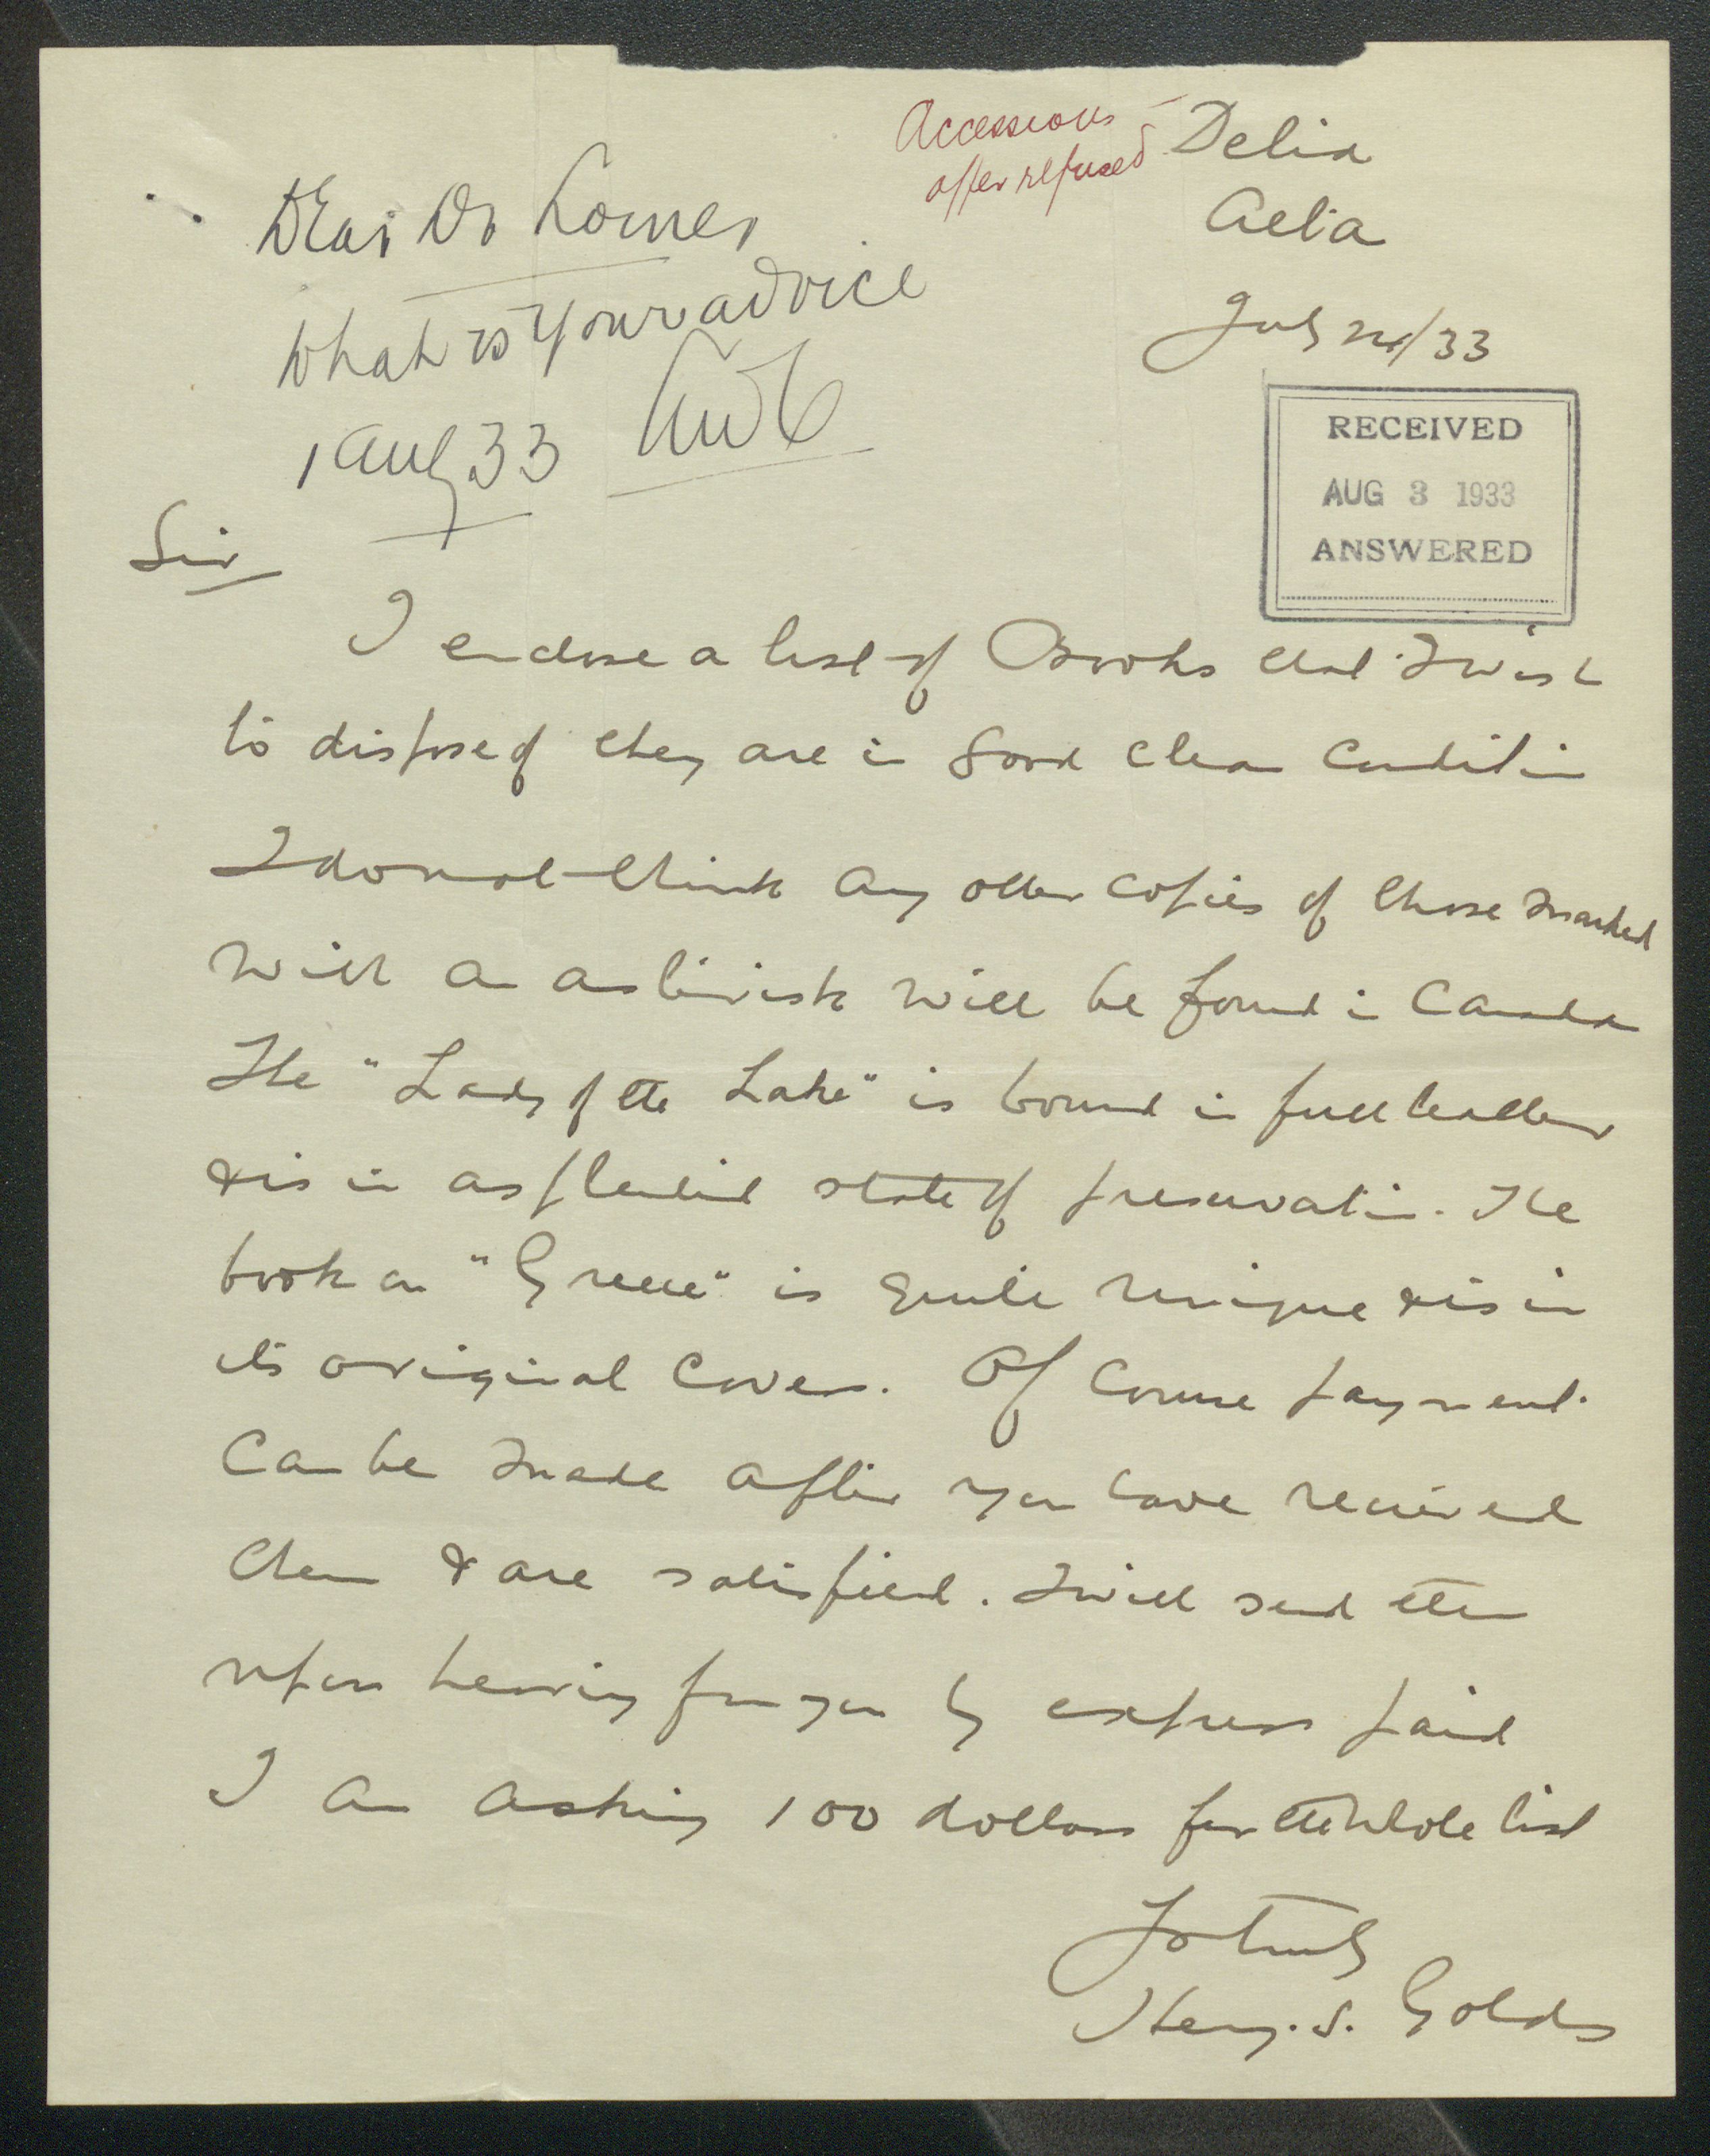 Accessions –
offer refused
Delia
Aelia
July 24/33
Dear Dr Lomer
What is your advice
1 Aug 33
RECEIVED
AUG 3 1933
ANSWERED
Sir
I enclose a list of Books that I wish
to dispose of they are in good clean condition
I do not think any other copies of those marked
with an asterisk will be found in Canada
The "Lady of the Lake" is bound in full leather
& is in a splendid state of preservation. The
book on "Greece" is quite unique & is in
its original covers. Of course payment
can be made after you have received
them & are satisfied. I will send them
upon hearing from you by express paid
I am asking 100 dollars for the whole list
Yrs truly
Henry. S. Golds